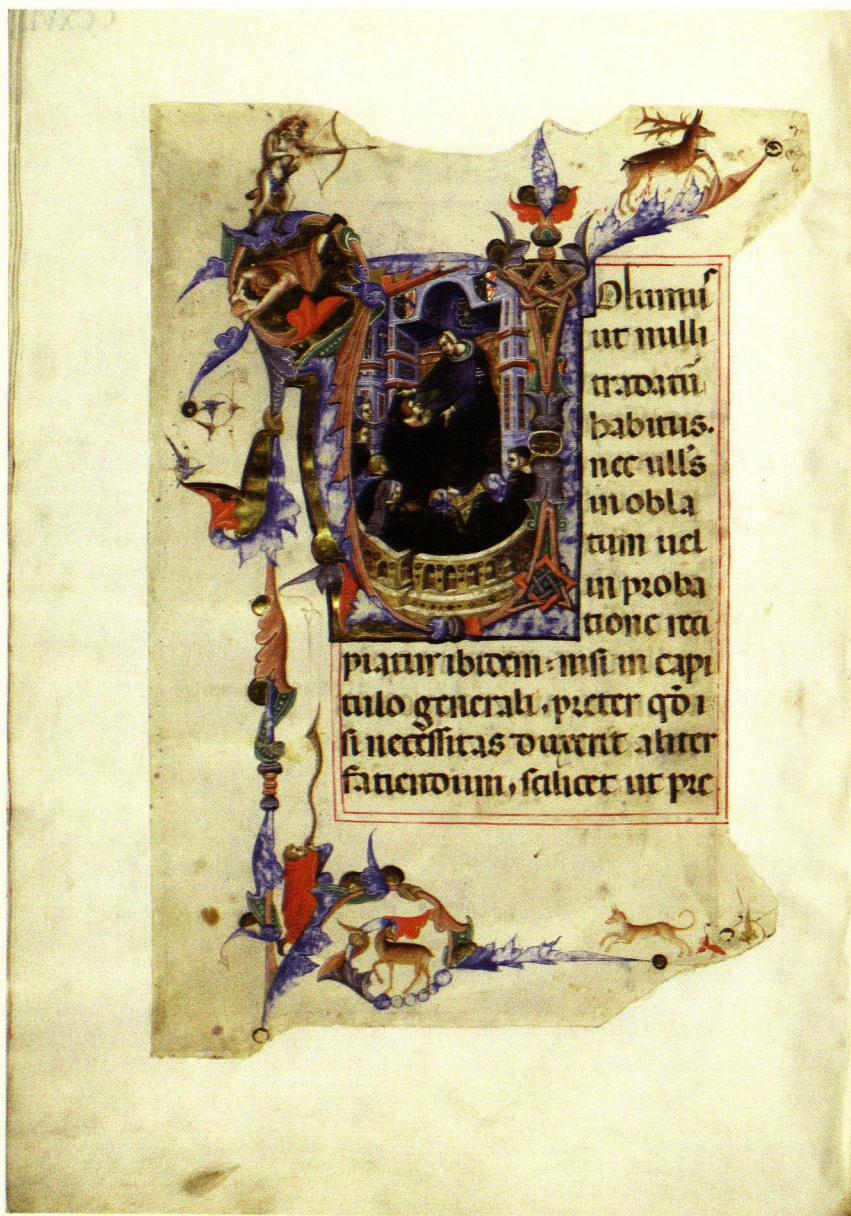 Olumus
ut nulli
tradatū
habitus.
nec ull's
in obla
tum uel
in proba
tione reci
piatur ibidem: nisi in capi
tulo generali, preter qd̄ i
si necessitas duxerit aliter
faciendum, scilicet ut pre